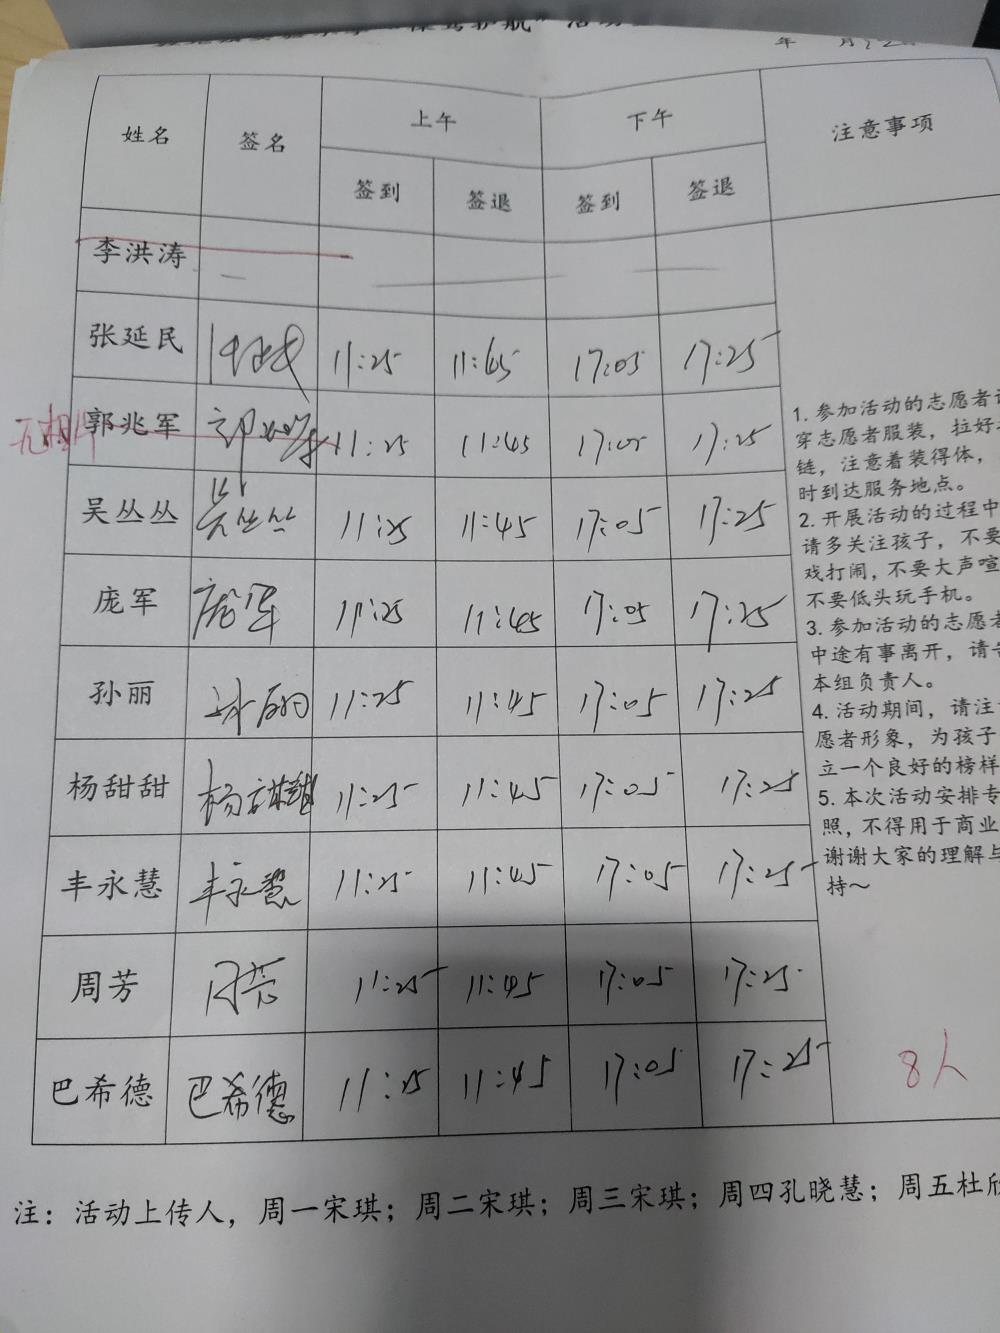 护航”活动
年 月
姓名 签名 上午 下午 注意事项
签到 签退 签到 签退
李洪涛
张延民 11:25 11:45 17:05 17:25
无相片 郭兆军 郭兆军 11:25 11:45 17:05 17:25
吴丛丛 吴丛丛 11:25 11:45 17:05 17:25
庞军 庞军 11:25 11:45 17:05 17:25
孙丽 孙丽 11:25 11:45 17:05 17:25
杨甜甜 杨甜甜 11:25 11:45 17:05 17:25
丰永慧 丰永慧 11:25 11:45 17:05 17:25
周芳 周芳 11:25 11:45 17:05 17:25
巴希德 巴希德 11:25 11:45 17:05 17:25
1. 参加活动的志愿者
穿志愿者服装，拉好
链，注意着装得体，
时到达服务地点。
2. 开展活动的过程中
请多关注孩子，不要
戏打闹，不要大声喧
不要低头玩手机。
3. 参加活动的志愿者
中途有事离开，请
本组负责人。
4. 活动期间，请注
愿者形象，为孩子
立一个良好的榜样
5. 本次活动安排专
照，不得用于商业
谢谢大家的理解与
持～
8人
注：活动上传人，周一宋琪；周二宋琪；周三宋琪；周四孔晓慧；周五杜欣